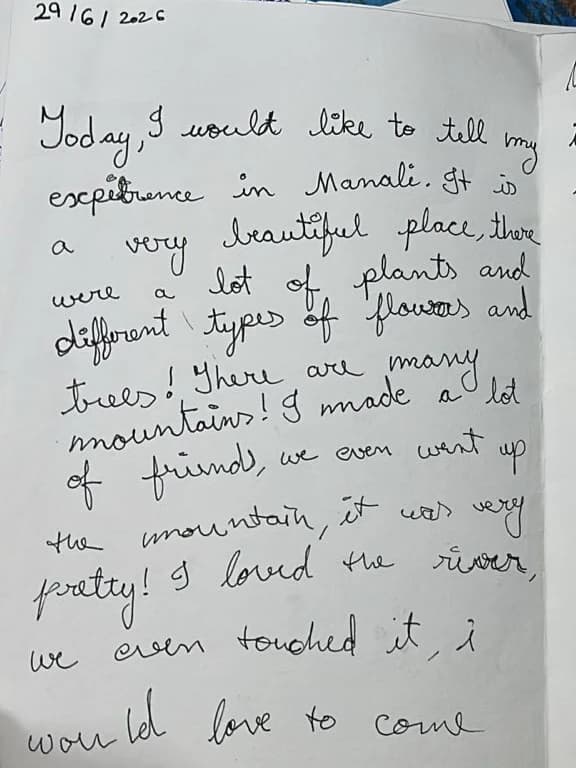 29/6/2026
Today, I would like to tell my
experience in Manali. It is
a very beautiful place, there
were a lot of plants and
different types of flowers and
trees! There are many
mountains! I made a lot
of friends, we even went up
the mountain, it was very
pretty! I loved the river,
we even touched it, i
would love to come